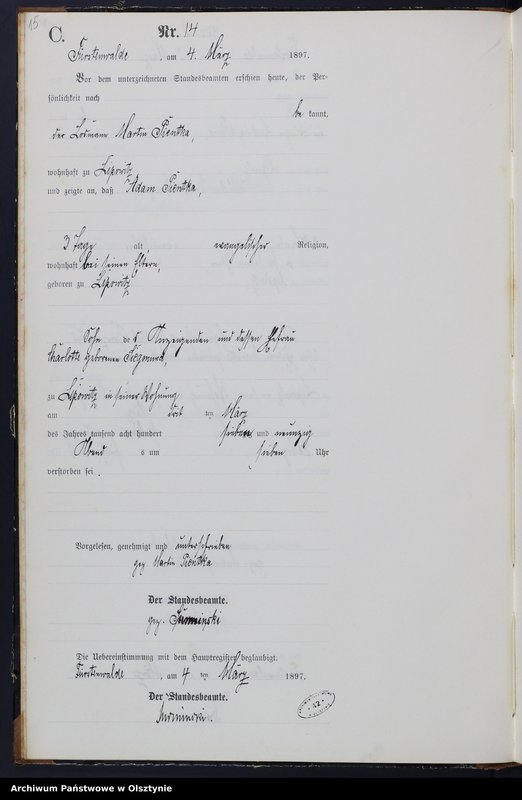 15
C.
Nr. 14
Fürstenwalde, am 4. März 1897.
Vor dem unterzeichneten Standesbeamten erschien heute, der Per-
sönlichkeit nach
be kannt,
der Losmann Martin Pientka,
wohnhaft zu Lipowitz
und zeigte an, daß Adam Pientka,
3 Tage alt, evangelischer Religion,
wohnhaft bei seinen Eltern,
geboren zu Lipowitz
Sohn des Anzeigenden und dessen Ehefrau
Charlotte geborenen
zu Lipowitz in seiner Wohnung
am drit ten März
des Jahres tausend acht hundert sieben und neunzig
Abend s um sieben Uhr
verstorben sei.
Vorgelesen, genehmigt und unterschrieben
gez. Martin Pientka
Der Standesbeamte.
gez.
Die Uebereinstimmung mit dem Hauptregister beglaubigt.
Fürstenwalde, am 4 ten März 1897.
Der Standesbeamte.
42
Archiwum Państwowe w Olsztynie